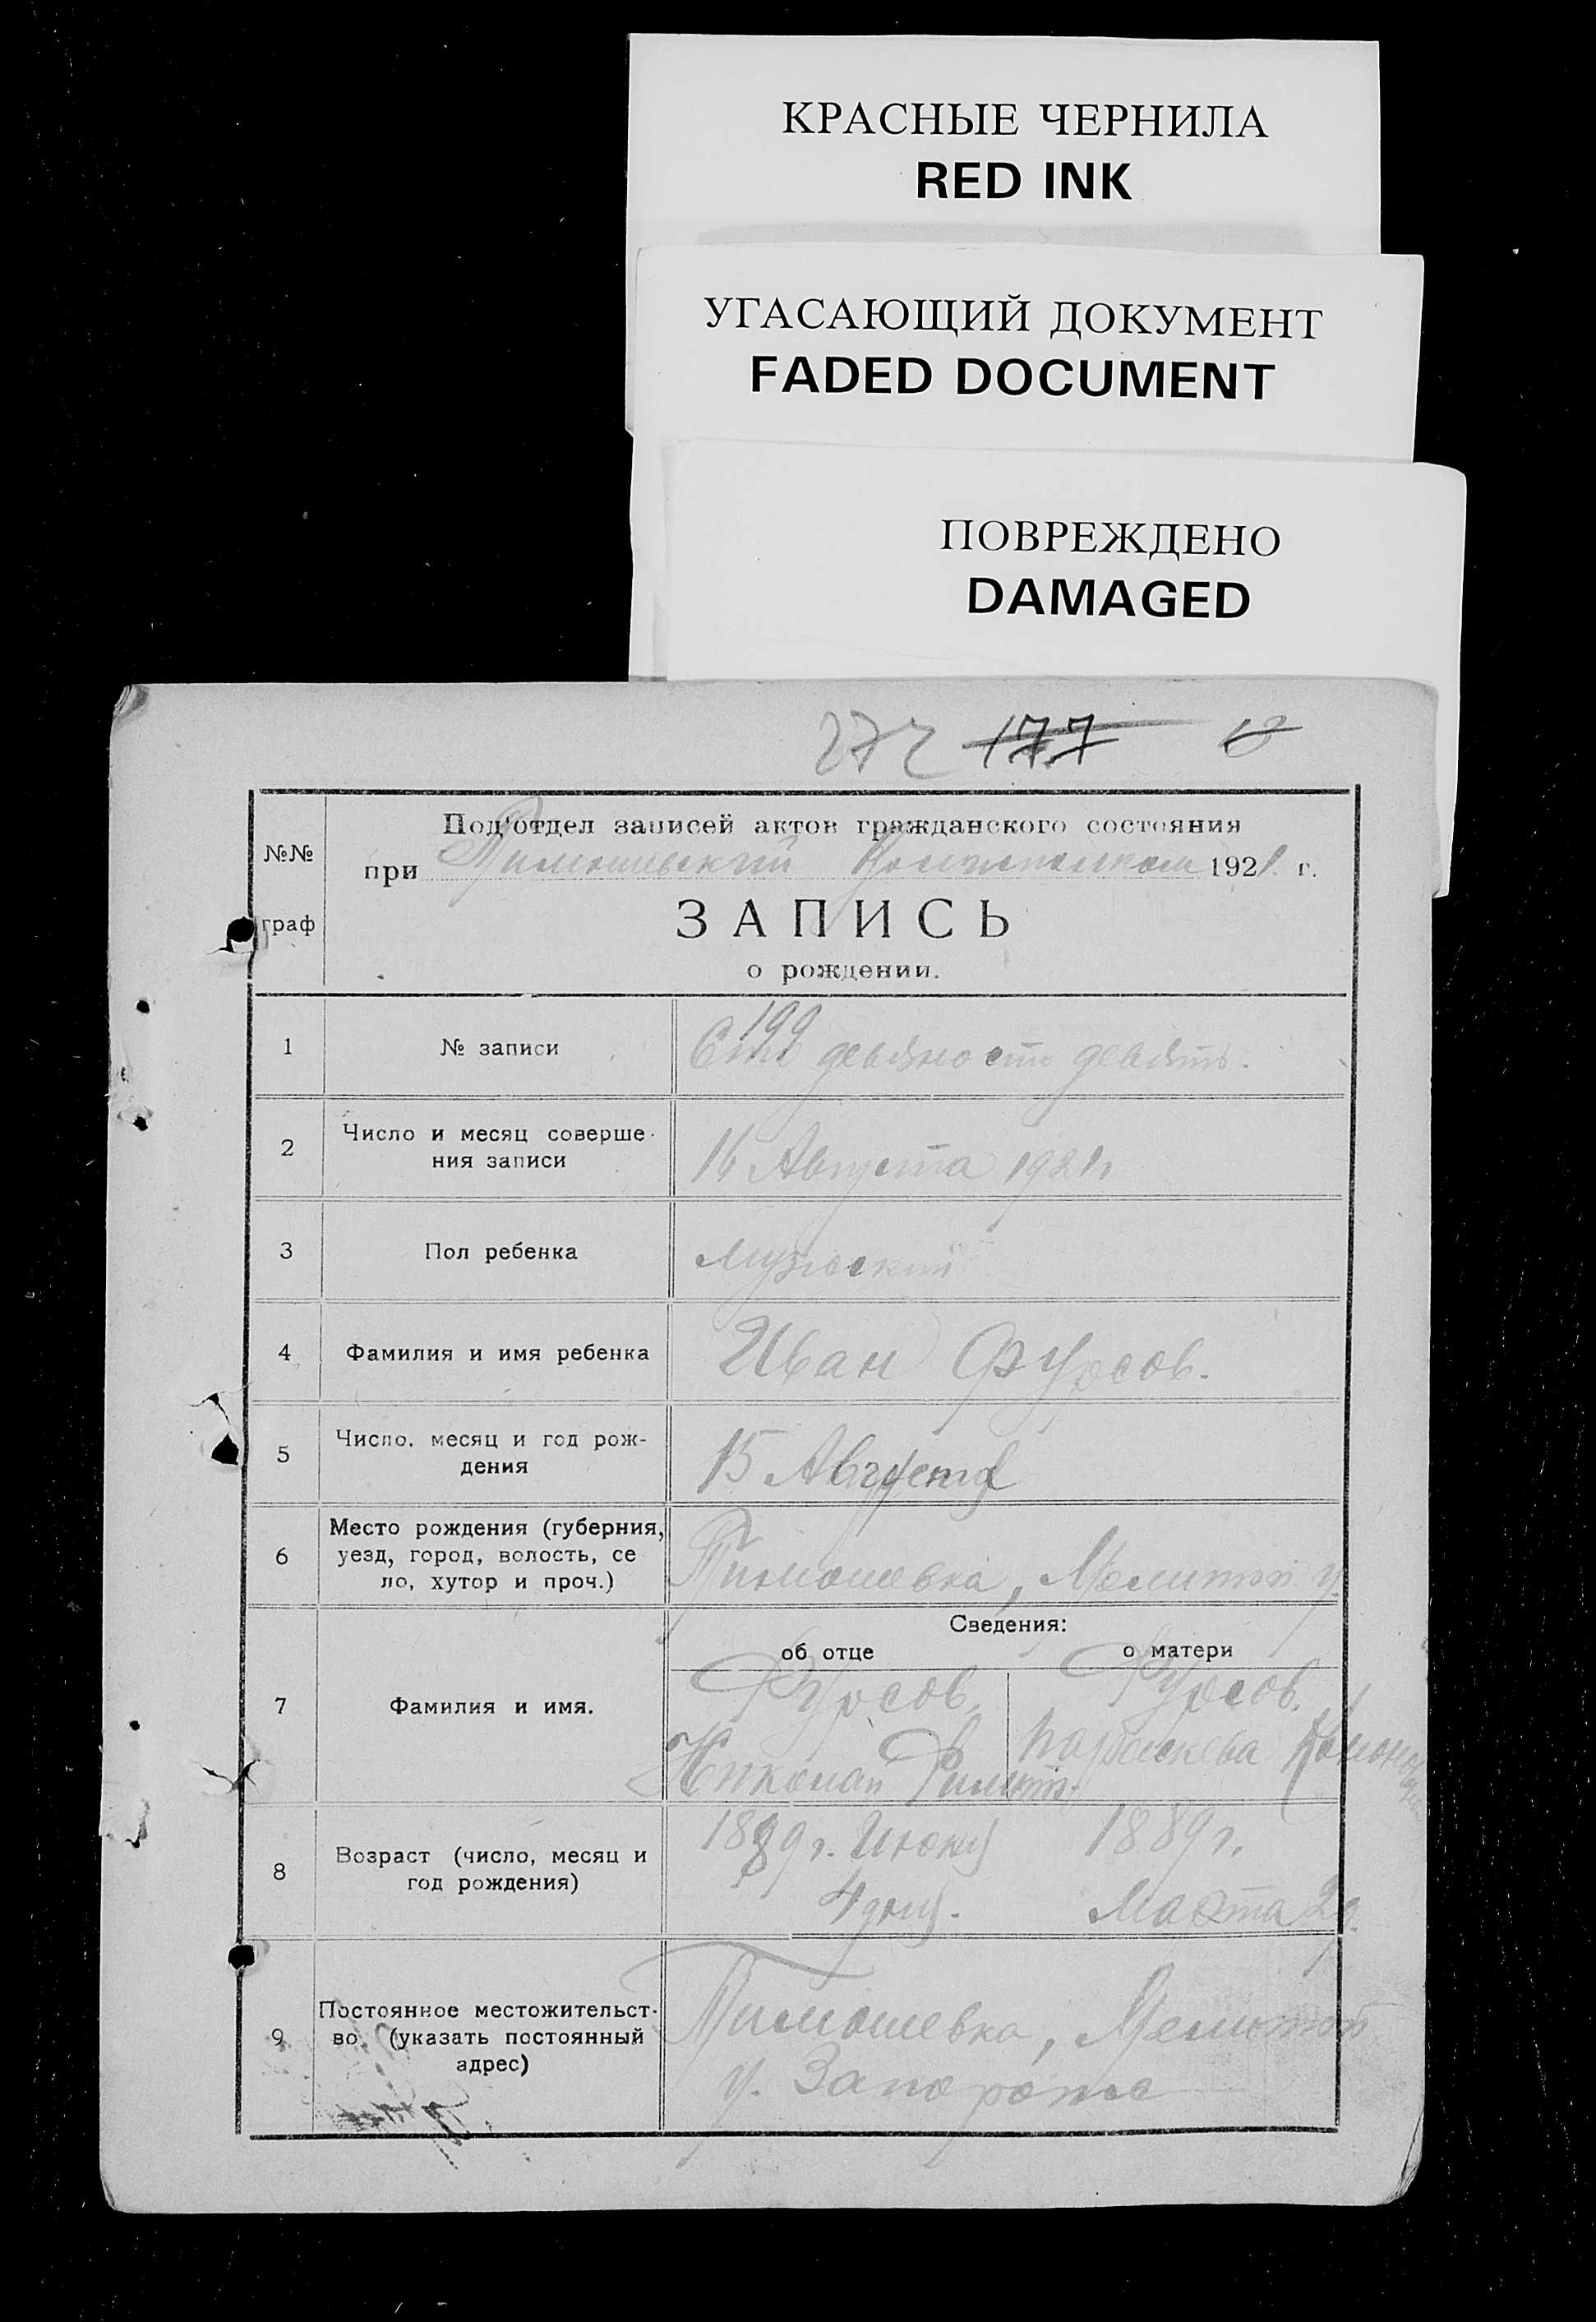 КРАСНЫЕ ЧЕРНИЛА
RED INK
УГАСАЮЩИЙ ДОКУМЕНТ
FADED DOCUMENT
ПОВРЕЖДЕНО
DAMAGED
272 177
№№
граф
Под'отдел записей актов гражданского состояния
при 1921 г.
ЗАПИСЬ
о рождении.
1 № записи
199
Сто девяносто девять.
2 Число и месяц соверше-
ния записи
16 Августа 1921 г
3 Пол ребенка мужской
4 Фамилия и имя ребенка Иван Фурсов.
5 Число, месяц и год рож-
дения
15 Августа
6 Место рождения (губерния,
уезд, город, волость, се
ло, хутор и проч.)
Тимошевка, Мелитоп у.
Сведения:
об отце о матери
7 Фамилия и имя.
Фурсов. Фурсов.
Николай Филип. Параскева
8 Возраст (число, месяц и
год рождения)
1889 г. Июня 1889 г.
4 дня. Марта
9 Постоянное местожительст-
во (указать постоянный
адрес)
Тимошевка, Мелитоп
у. Запорож